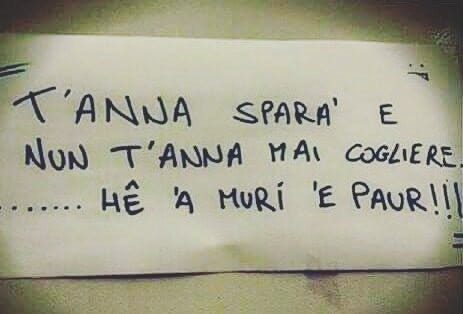 T'ANNA SPARA' E
NUN T'ANNA MAI COGLIERE.
....... HÊ 'A MURÍ 'E PAUR!!!